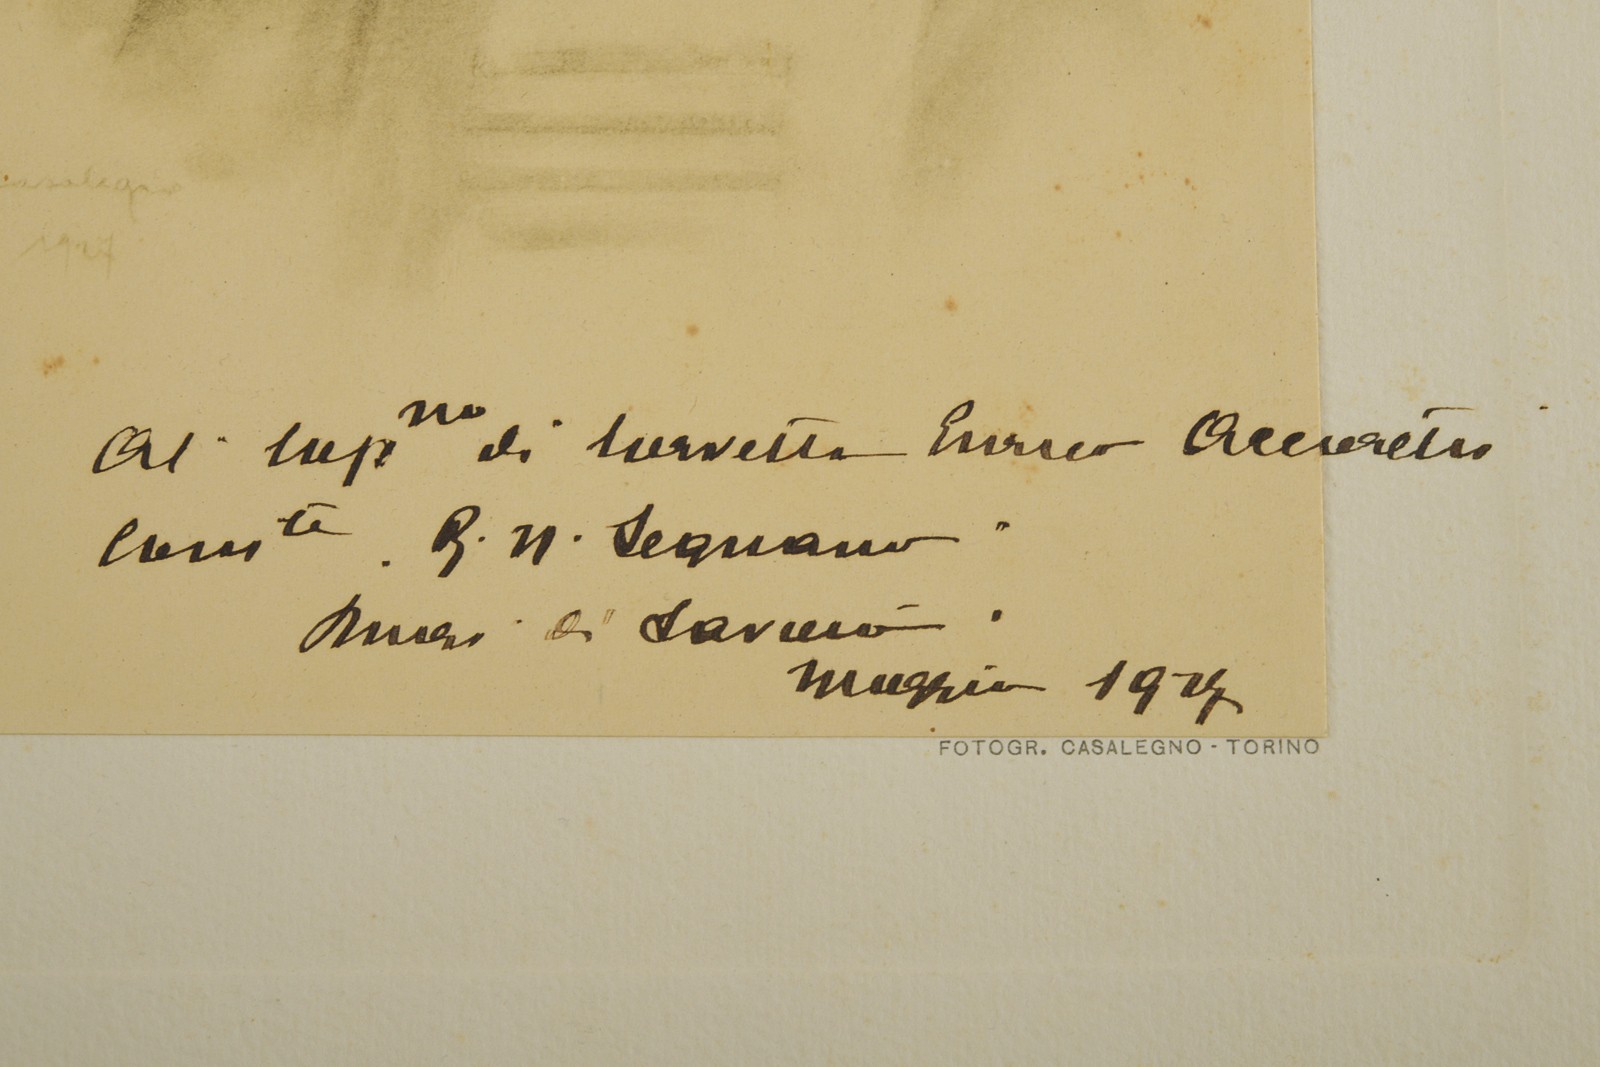 Casalegno
1927
Al Cap.no di Corvetta Enrico Accoretti
Com.te R. N. Legnano
di Savoia
Maggio 1927
FOTOGR. CASALEGNO - TORINO